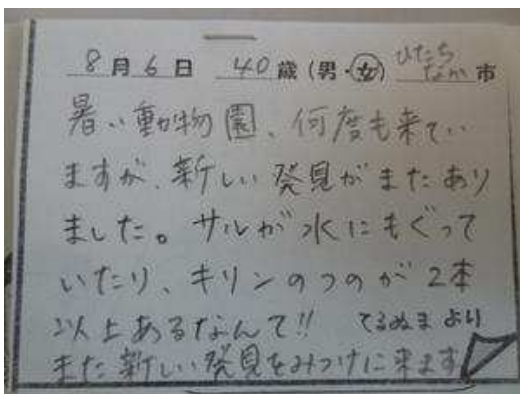 8月6日 40歳(男・女) ひたちなか市
暑い動物園、何度も来てい
ますが、新しい発見がまたあり
ました。サルが水にもぐって
いたり、キリンのつのが2本
以上あるなんて!! てるぬまより
また新しい発見をみつけに来ます